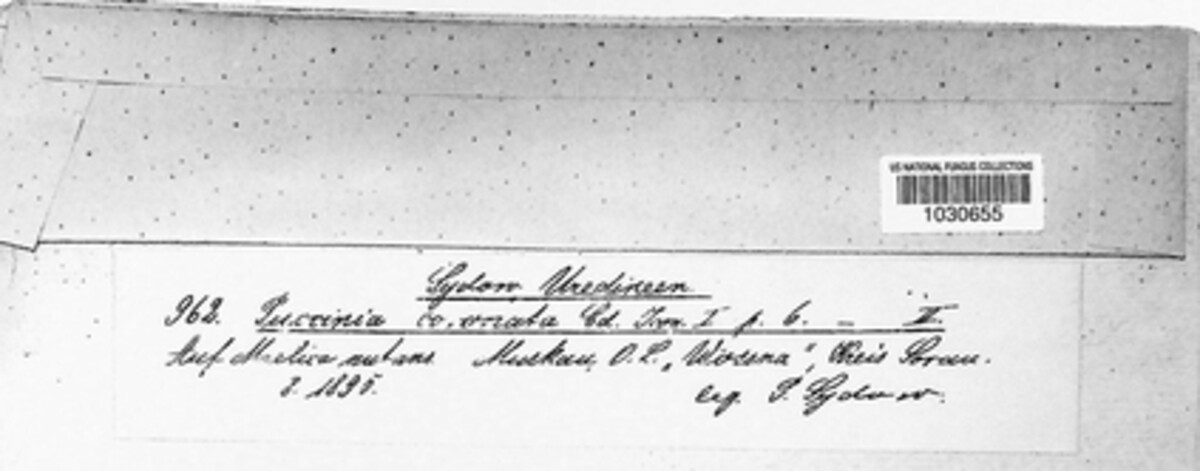 US NATIONAL FUNGUS COLLECTIONS
1030655
Sydow, Uredineen
962. Puccinia coronata Cd. Icon. I p. 6. — II
Auf Melica nutans Muskau, O. L. „Wossna", Kreis Sorau.
leg. P. Sydow.